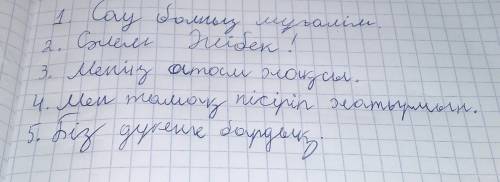 1. Сау болыңыз мұғалім.
2. Сәлем Әлібек!
3. Менің атам жақсы.
4. Мен тамақ пісіріп жатырмын.
5. Біз дүкенге бардық.